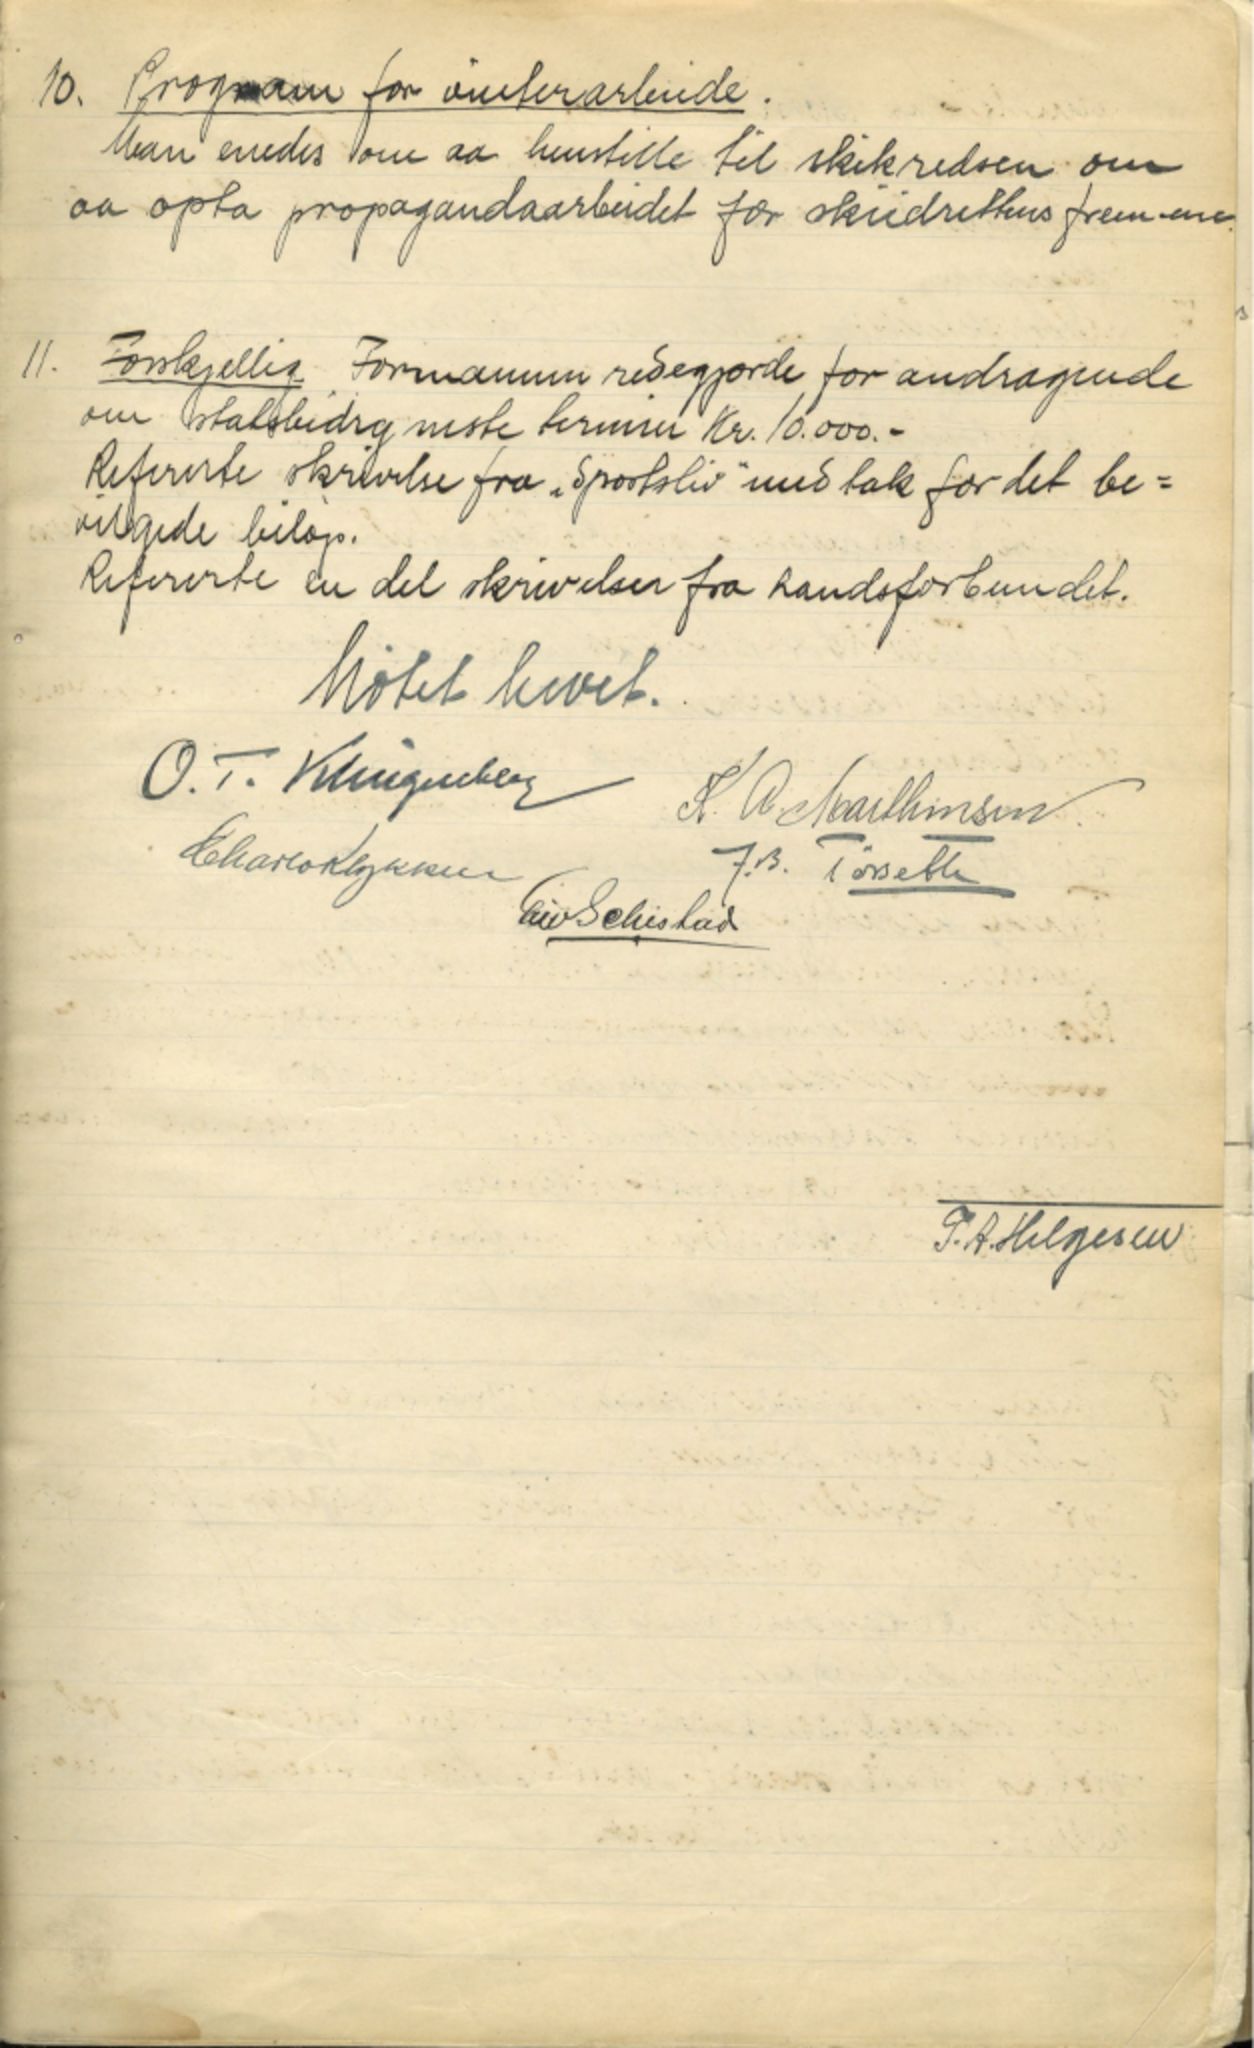 10. Program for vinterarbeide.
Man enedes om aa henstille til skikredsen om
aa opta propagandaarbeidet for skiidrettens fremme.
11. Forskjellig Formannen redegjorde for andragende
om statsbidrg neste termin Kr. 10.000.-
Refererte skrivelse fra „Sportsliv" med tak for det be=
vilgede beløp.
Refererte en del skrivelser fra Landsforbundet.
Møtet hevet.
O. T. Klingenberg
K. A. Marthinsen
Lykken
F. B. Tørseth
Schistad
T. A. Helgesen